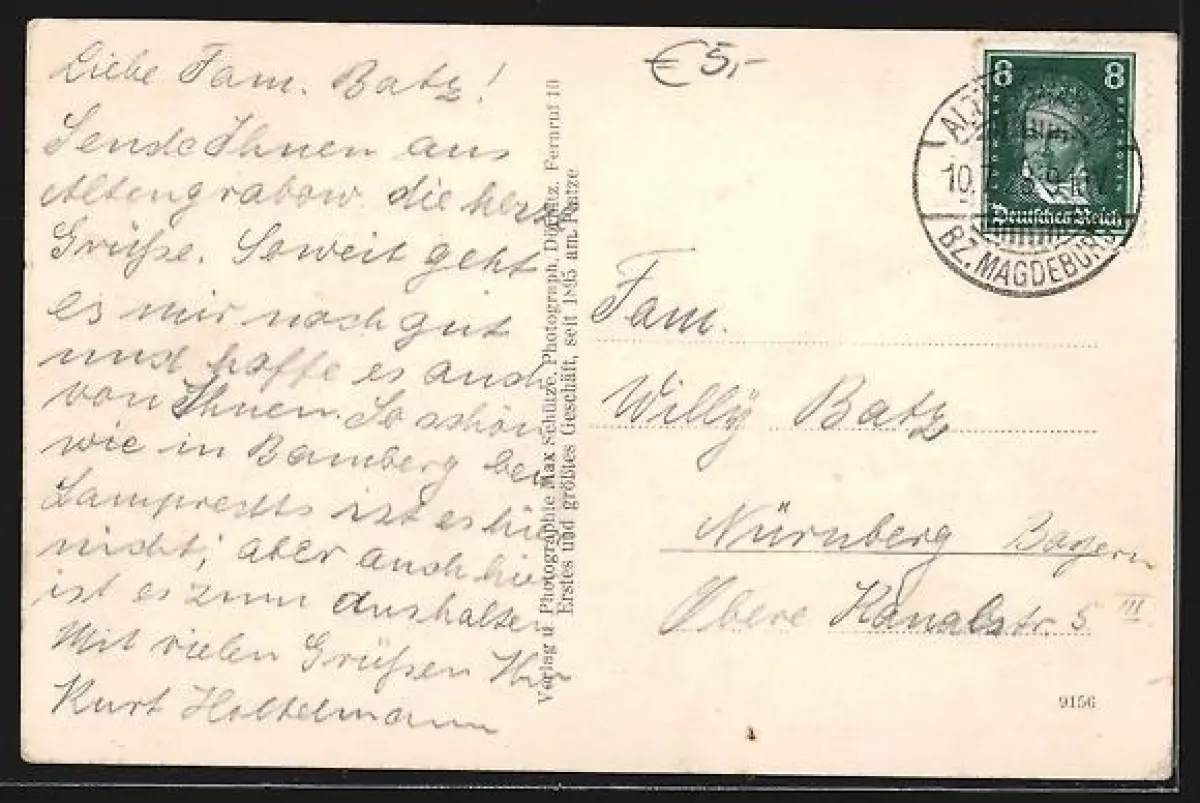 Liebe Fam. Batz!
Sende Ihnen aus
Altengrabow die herz.
Grüße. Soweit geht
es mir noch gut
und hoffe es auch
von Ihnen. So schön
wie in Bamberg bei
Lamprechts ist es hie
nicht; aber auch hie
ist es zum aushalten
Mit vielen Grüßen Ihr
Kurt Holtelmann
Verlag u. Photographie Max Schütze, Photograph, Dörnitz. Fernruf 10
Erstes und größtes Geschäft, seit 1895 am Platze
€5,-
8 8
Deutsches Reich
10.7. 9-10V
BZ. MAGDEBURG
Fam.
Willy Batz
Nürnberg Bayern
Obere Kanalstr. 5 III
9156